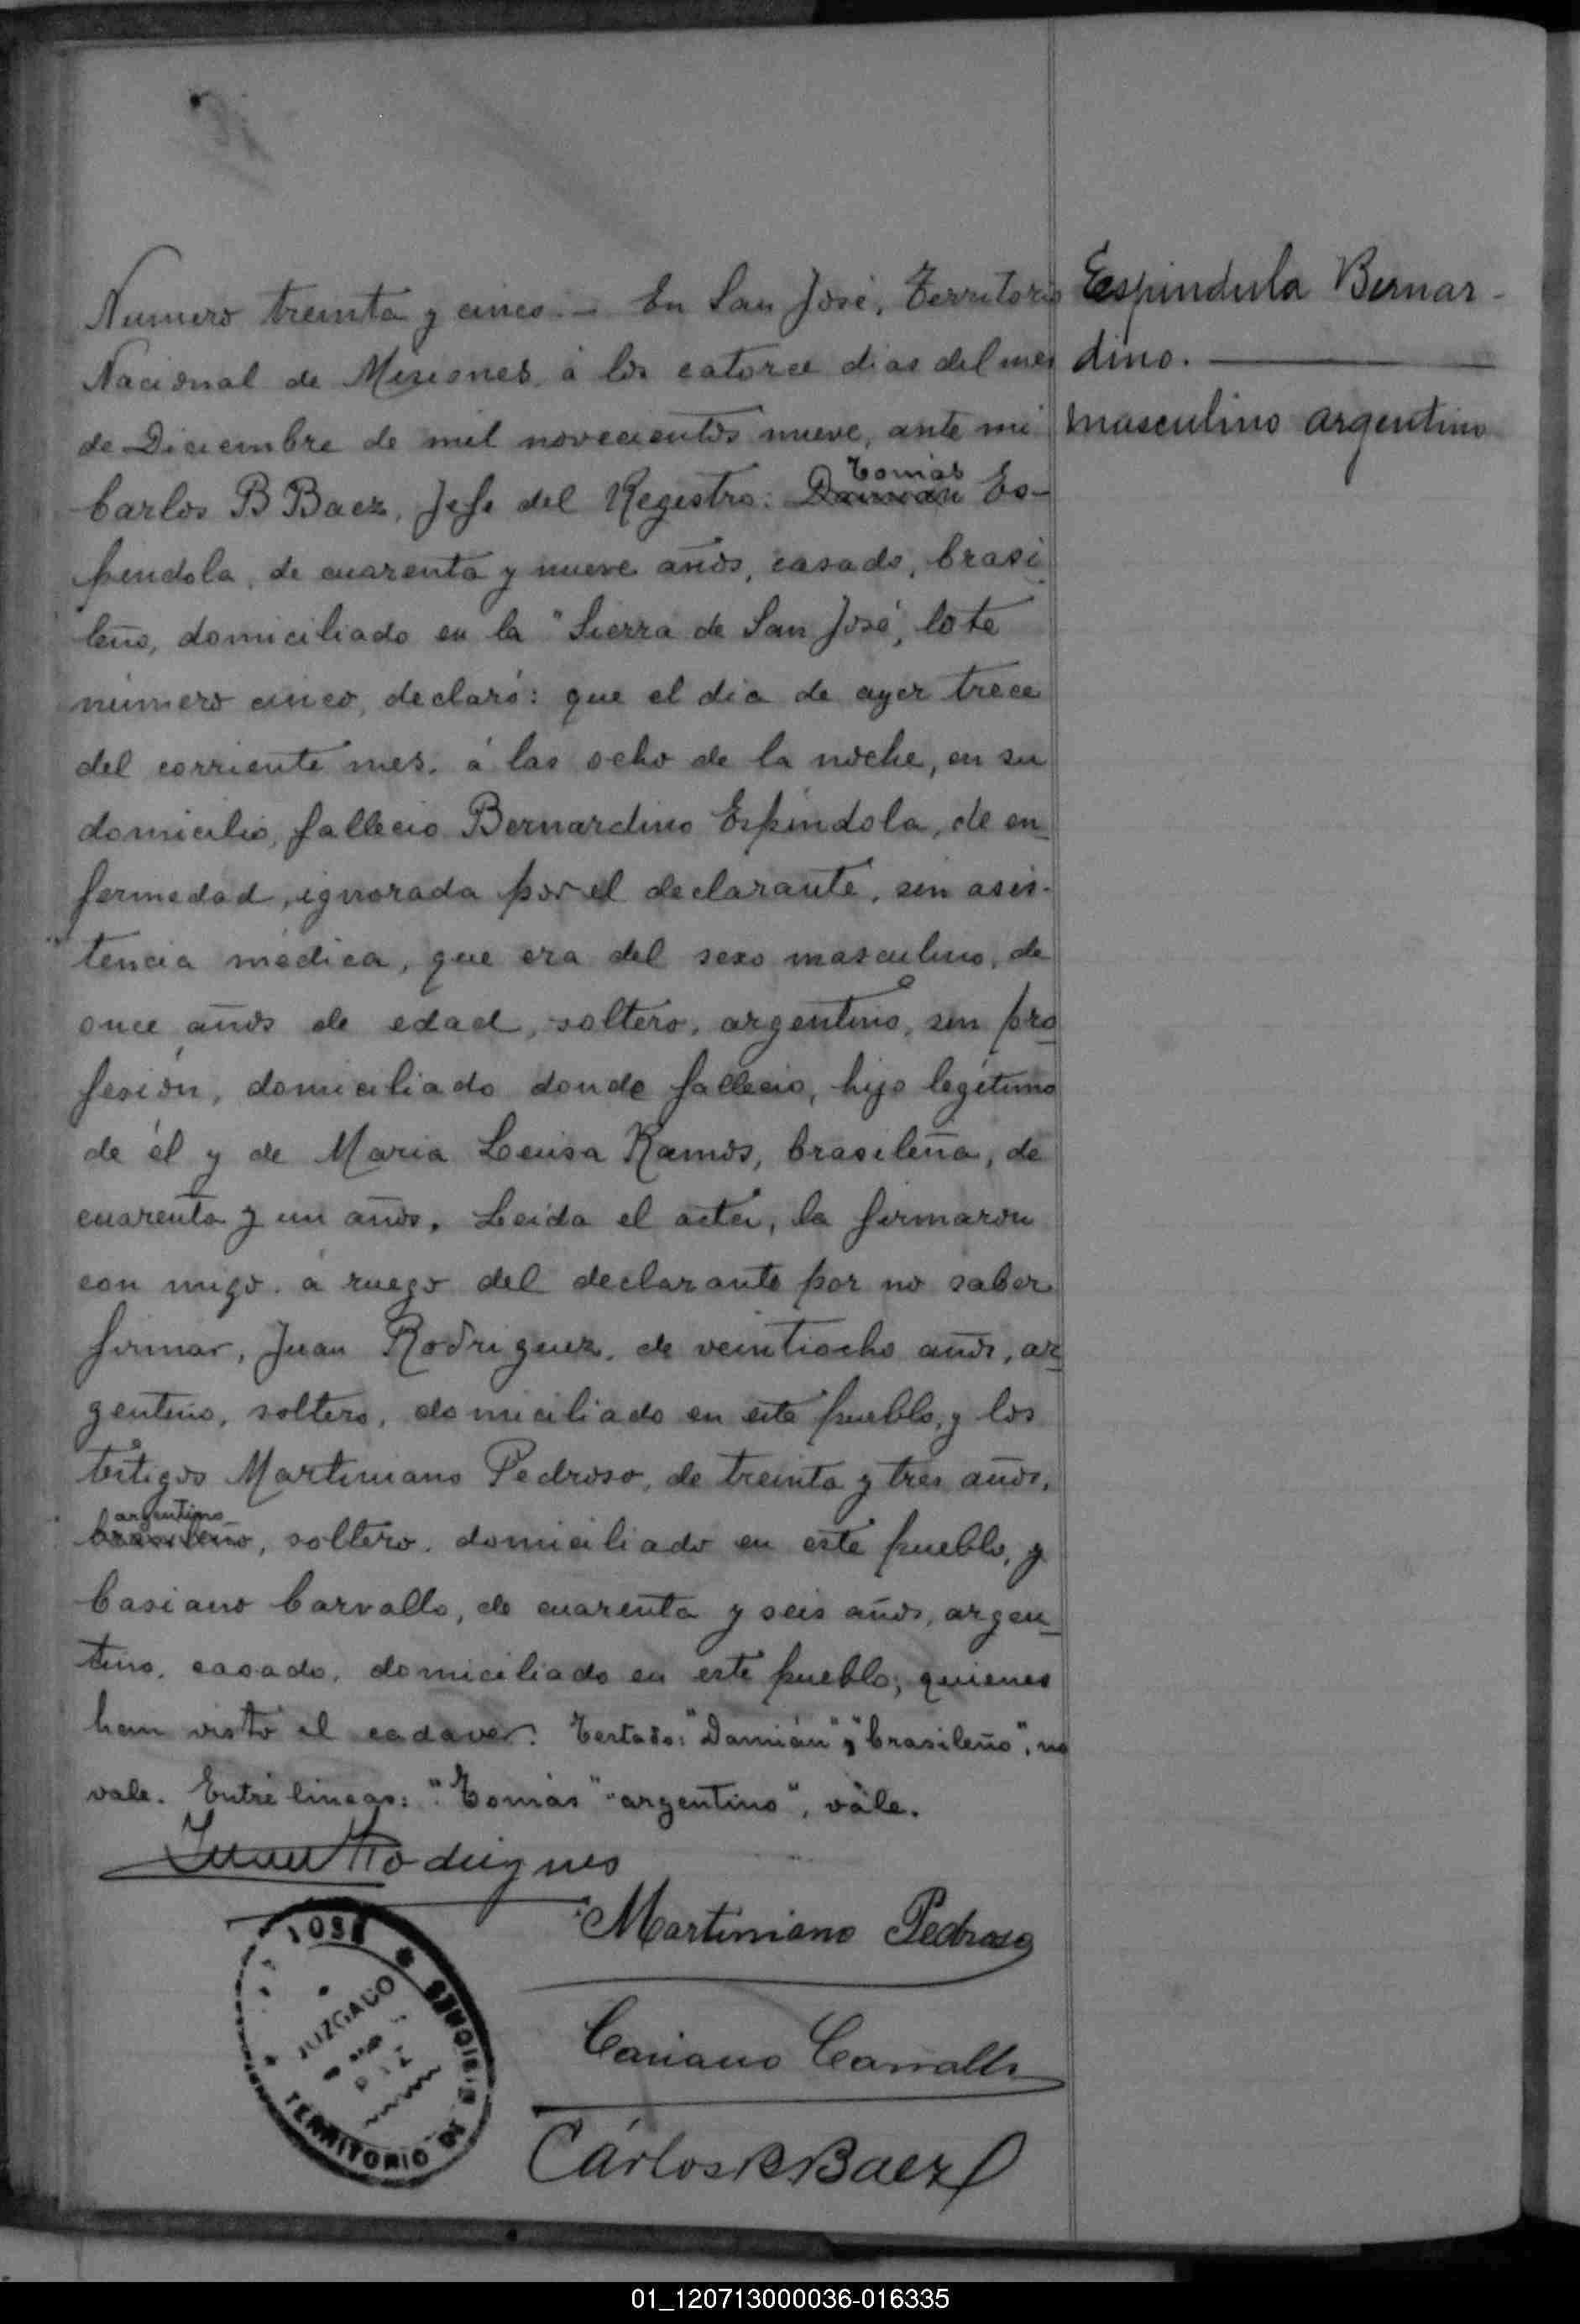 Numero treinta y cinco.— En San José, Territorio
Nacional de Misiones, á los catorce dias del mes
de Diciembre de mil novecientos nueve, ante mi
Tomás
Carlos B Baez, Jefe del Registro: Damián Es-
píndola, de cuarenta y nueve años, casado, brasi
leño, domiciliado en la "Sierra de San José", lote
número cinco, declaró: que el dia de ayer trece
del corriente mes, á las ocho de la noche, en su
domicilio, fallecio Bernardino Espíndola, de en
fermedad, ignorada por el declarante, sin asis-
tencia médica, que era del sexo masculino, de
once años de edad, soltero, argentino, sin pro
fesión, domiciliado donde fallecio, hijo legítimo
de él y de Maria Luisa Ramos, brasileña, de
cuarenta y un años. Leida el acta, la firmaron
con migo, á ruego del declarante por no saber
firmar, Juan Rodriguez, de veintiocho años, ar
gentino, soltero, domiciliado en este pueblo, y los
testigos Martiniano Pedroso, de treinta y tres años,
argentino
brasileño, soltero, domiciliado en este pueblo, y
Casiano Carvallo, de cuarenta y seis años, argen
tino, casado, domiciliado en este pueblo; quienes
han visto el cadaver. Testado: "Damián" y "brasileño", no
vale. Entre lineas: "Tomás" "argentino", vale.
Juan Rodrigues
Martiniano Pedroso
Casiano Carvallo
Cárlos B Baez
Espindula Bernar-
dino.
masculino argentino
JOSÉ
MISIONES
JUZGADO
TERRITORIO DE
01_120713000036-016335